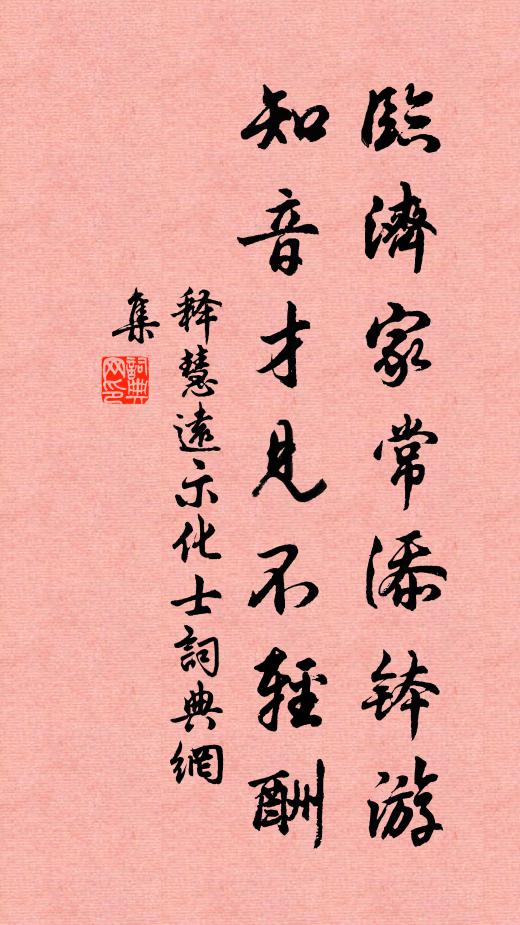 臨濟家常添鉢游
知音才見不輕酬
释慧遠示化士詞典網
集
詞典网印